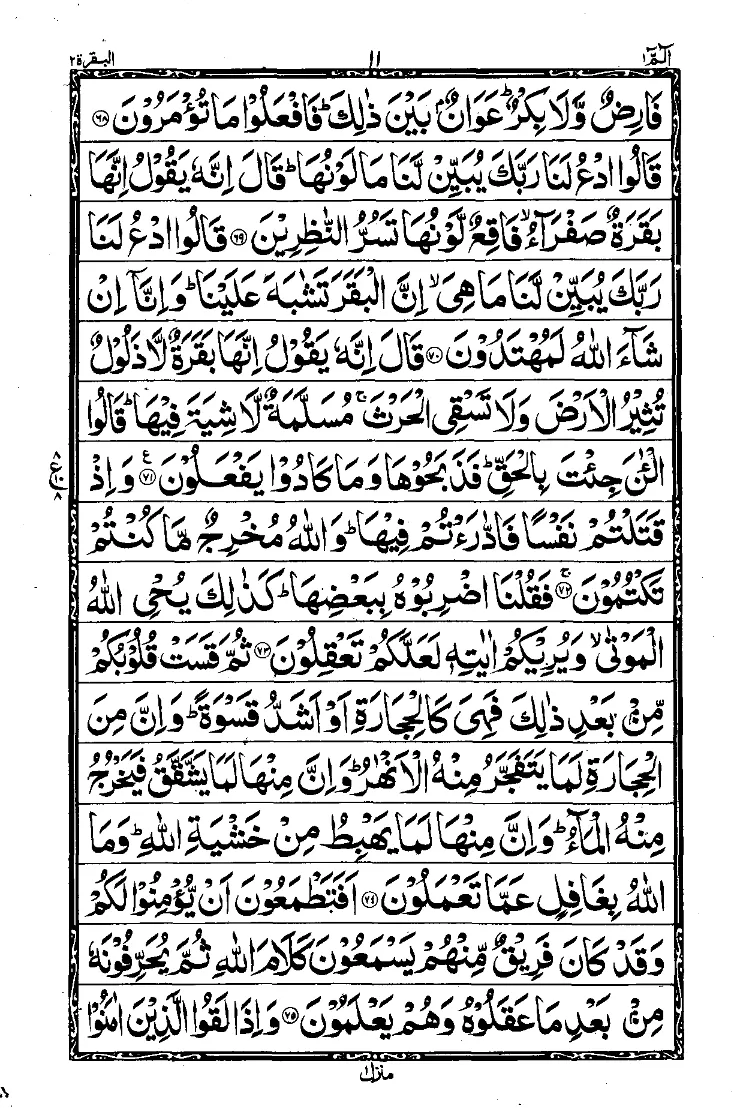 الٓمّٓ ١
١١
البقرة ٢
فَارِضٌ وَّلَا بِكْرٌ ؕ عَوَانٌۢ بَيْنَ ذٰلِكَ ؕ فَافْعَلُوْا مَا تُؤْمَرُوْنَ ﴿۶۸﴾
قَالُوا ادْعُ لَنَا رَبَّكَ يُبَيِّنْ لَّنَا مَا لَوْنُهَا ؕ قَالَ اِنَّهٗ يَقُوْلُ اِنَّهَا
بَقَرَةٌ صَفْرَآءُ ۙ فَاقِعٌ لَّوْنُهَا تَسُرُّ النّٰظِرِيْنَ ﴿۶۹﴾ قَالُوا ادْعُ لَنَا
رَبَّكَ يُبَيِّنْ لَّنَا مَا هِىَ ۙ اِنَّ الْبَقَرَ تَشٰبَهَ عَلَيْنَا ؕ وَاِنَّاۤ اِنْ
شَآءَ اللّٰهُ لَمُهْتَدُوْنَ ﴿۷۰﴾ قَالَ اِنَّهٗ يَقُوْلُ اِنَّهَا بَقَرَةٌ لَّا ذَلُوْلٌ
تُثِيْرُ الْاَرْضَ وَلَا تَسْقِى الْحَرْثَ ۚ مُسَلَّمَةٌ لَّا شِيَةَ فِيْهَا ؕ قَالُوا
الْـٰٔنَ جِئْتَ بِالْحَقِّ ؕ فَذَبَحُوْهَا وَمَا كَادُوْا يَفْعَلُوْنَ ﴿۷۱﴾ ع وَاِذْ
٨ ع ١٠ ٨
قَتَلْتُمْ نَفْسًا فَادّٰرَءْتُمْ فِيْهَا ؕ وَاللّٰهُ مُخْرِجٌ مَّا كُنْتُمْ
تَكْتُمُوْنَ ﴿۷۲﴾ ۚ فَقُلْنَا اضْرِبُوْهُ بِبَعْضِهَا ؕ كَذٰلِكَ يُحْىِ اللّٰهُ
الْمَوْتٰى ۙ وَيُرِيْكُمْ اٰيٰتِهٖ لَعَلَّكُمْ تَعْقِلُوْنَ ﴿۷۳﴾ ثُمَّ قَسَتْ قُلُوْبُكُمْ
مِّنْۢ بَعْدِ ذٰلِكَ فَهِىَ كَالْحِجَارَةِ اَوْ اَشَدُّ قَسْوَةً ؕ وَاِنَّ مِنَ
الْحِجَارَةِ لَمَا يَتَفَجَّرُ مِنْهُ الْاَنْهٰرُ ؕ وَاِنَّ مِنْهَا لَمَا يَشَّقَّقُ فَيَخْرُجُ
مِنْهُ الْمَآءُ ؕ وَاِنَّ مِنْهَا لَمَا يَهْبِطُ مِنْ خَشْيَةِ اللّٰهِ ؕ وَمَا
اللّٰهُ بِغَافِلٍ عَمَّا تَعْمَلُوْنَ ﴿۷۴﴾ اَفَتَطْمَعُوْنَ اَنْ يُّؤْمِنُوْا لَكُمْ
وَقَدْ كَانَ فَرِيْقٌ مِّنْهُمْ يَسْمَعُوْنَ كَلَامَ اللّٰهِ ثُمَّ يُحَرِّفُوْنَهٗ
مِنْۢ بَعْدِ مَا عَقَلُوْهُ وَهُمْ يَعْلَمُوْنَ ﴿۷۵﴾ وَاِذَا لَقُوا الَّذِيْنَ اٰمَنُوْا
منزل ١